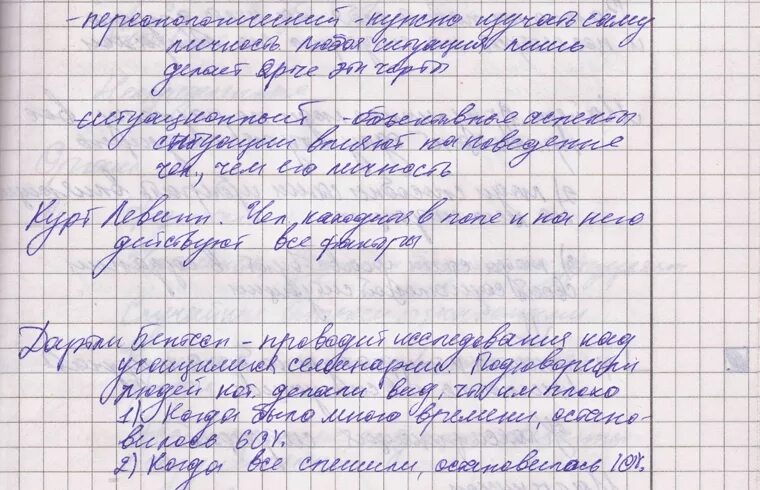 - персонологический - нужно изучать саму
личность. Любая ситуация лишь
делает ярче эти черты
- ситуационный - объективные аспекты
ситуации влияют на поведение
чел, чем его личность
Курт Левинн. Чел, находится в поле и на него
действуют все факторы
Дартли Бетсон - проводит исследования над
учащимися семинарии. Подговорили
людей кот делали вид, что им плохо
1) Когда было много времени, остано-
вилось 60%.
2) Когда все спешили, остановилось 10%.